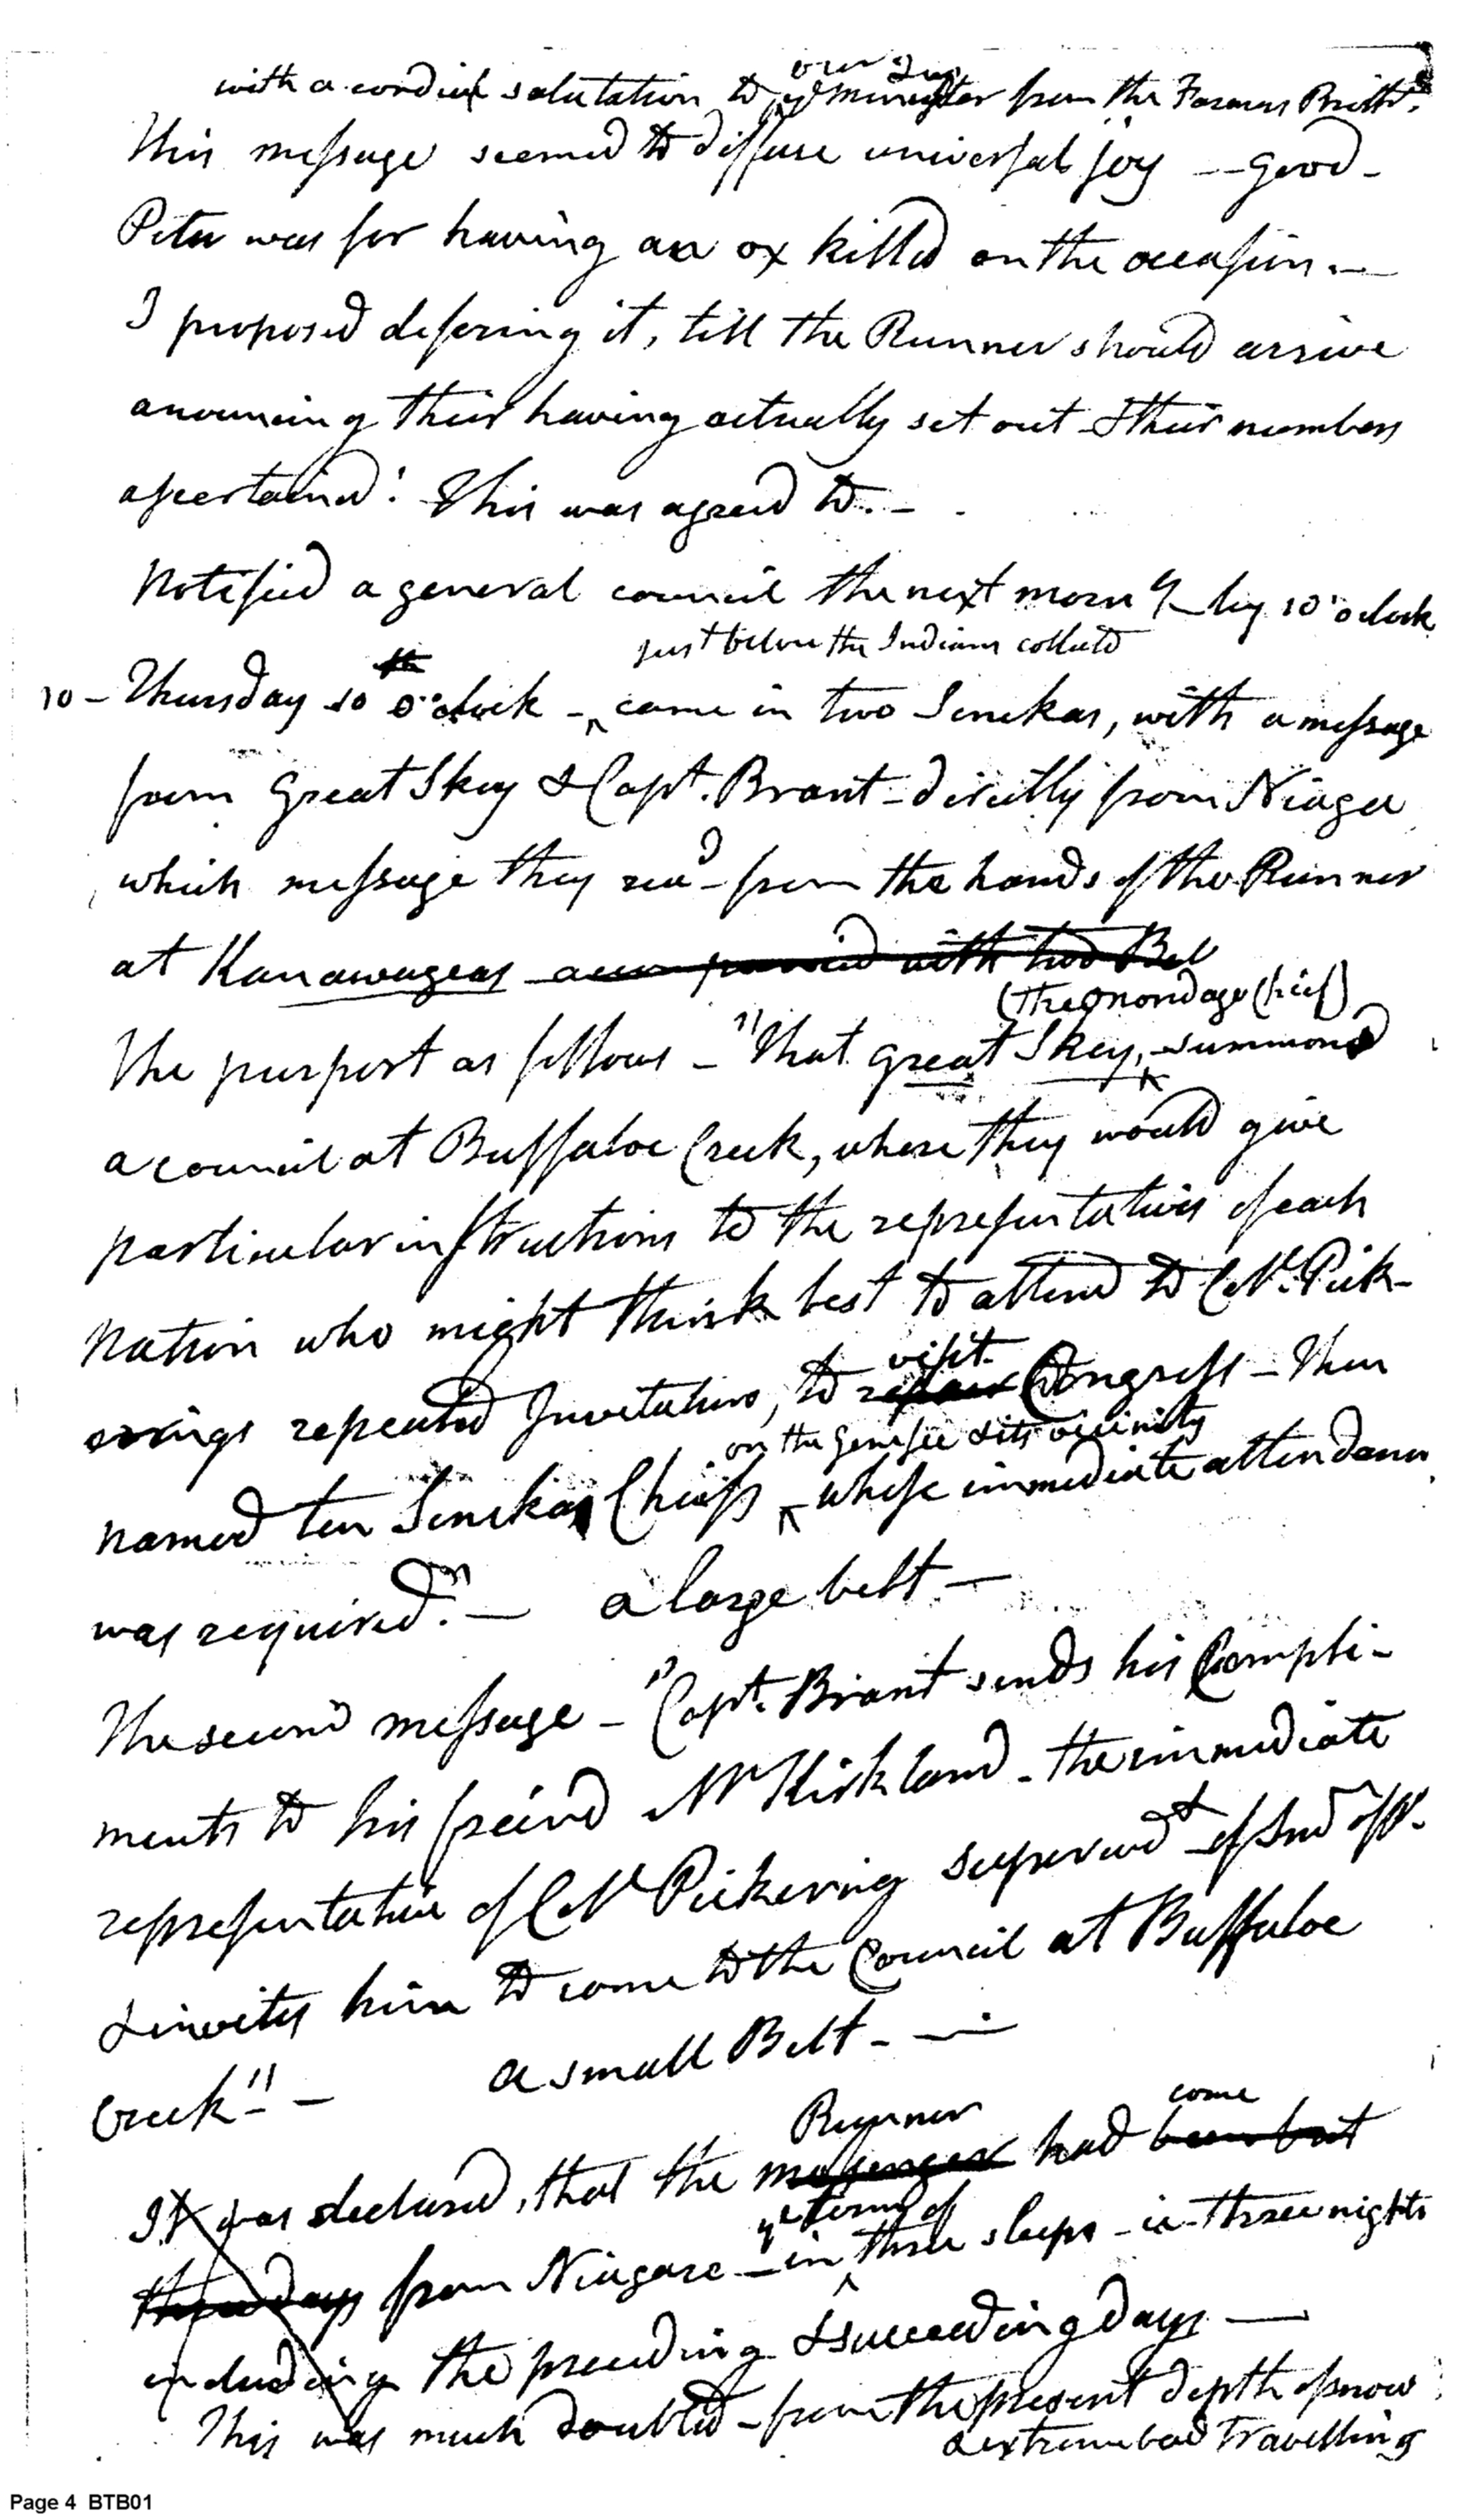 with a cordial salutation to our minister from the Farmers Brothr.
This message seemed to diffuse universal joy -- Good-
Peter was for having an ox killed on the occasion. —
I proposed defering it, till the Runner should arrive
anouncing their having actually set out & their numbers
ascertained! This was agreed to. -
Notified a general council the next morng by 10 o'clock
just before the Indians collected
10 - Thursday 10 o'clock - ^ came in two Senekas, with a message
from Great Skey & Capt. Brant - directly from Niaga
which message they recd from the hands of the Runner
at Kanawageas accompanied with two Bel
(the Onondage Chief)
The purport as follows - "That great Skey, ^ summond
a council at Buffaloe Creek, where they would give
particular instructions to the representatives of each
Nation who might think best to attend to Coll. Pick-
visit
erings repeated Invitations, to Congress - Then
on the Genesee & its vicinity
named ten Senekas Chiefs ^ whose immediate attendance
was required." — a large belt —
The second message - "Capt. Brant sends his Compli-
ments to his freind Mr Kirkland - the immediate
representative of Coll Pickering superindt of Ind aff.
& invites him to come to the Council at Buffaloe
Creek" - a small Belt - —
Runner come
It was declared, that the messenger had been but
ye term of
three days from Niagara - in ^ three sleeps - ie three nights
including the preceeding & succeeding days —
This was much doubted - from the present depth of snow
& extreme bad travelling
Page 4 BTB01